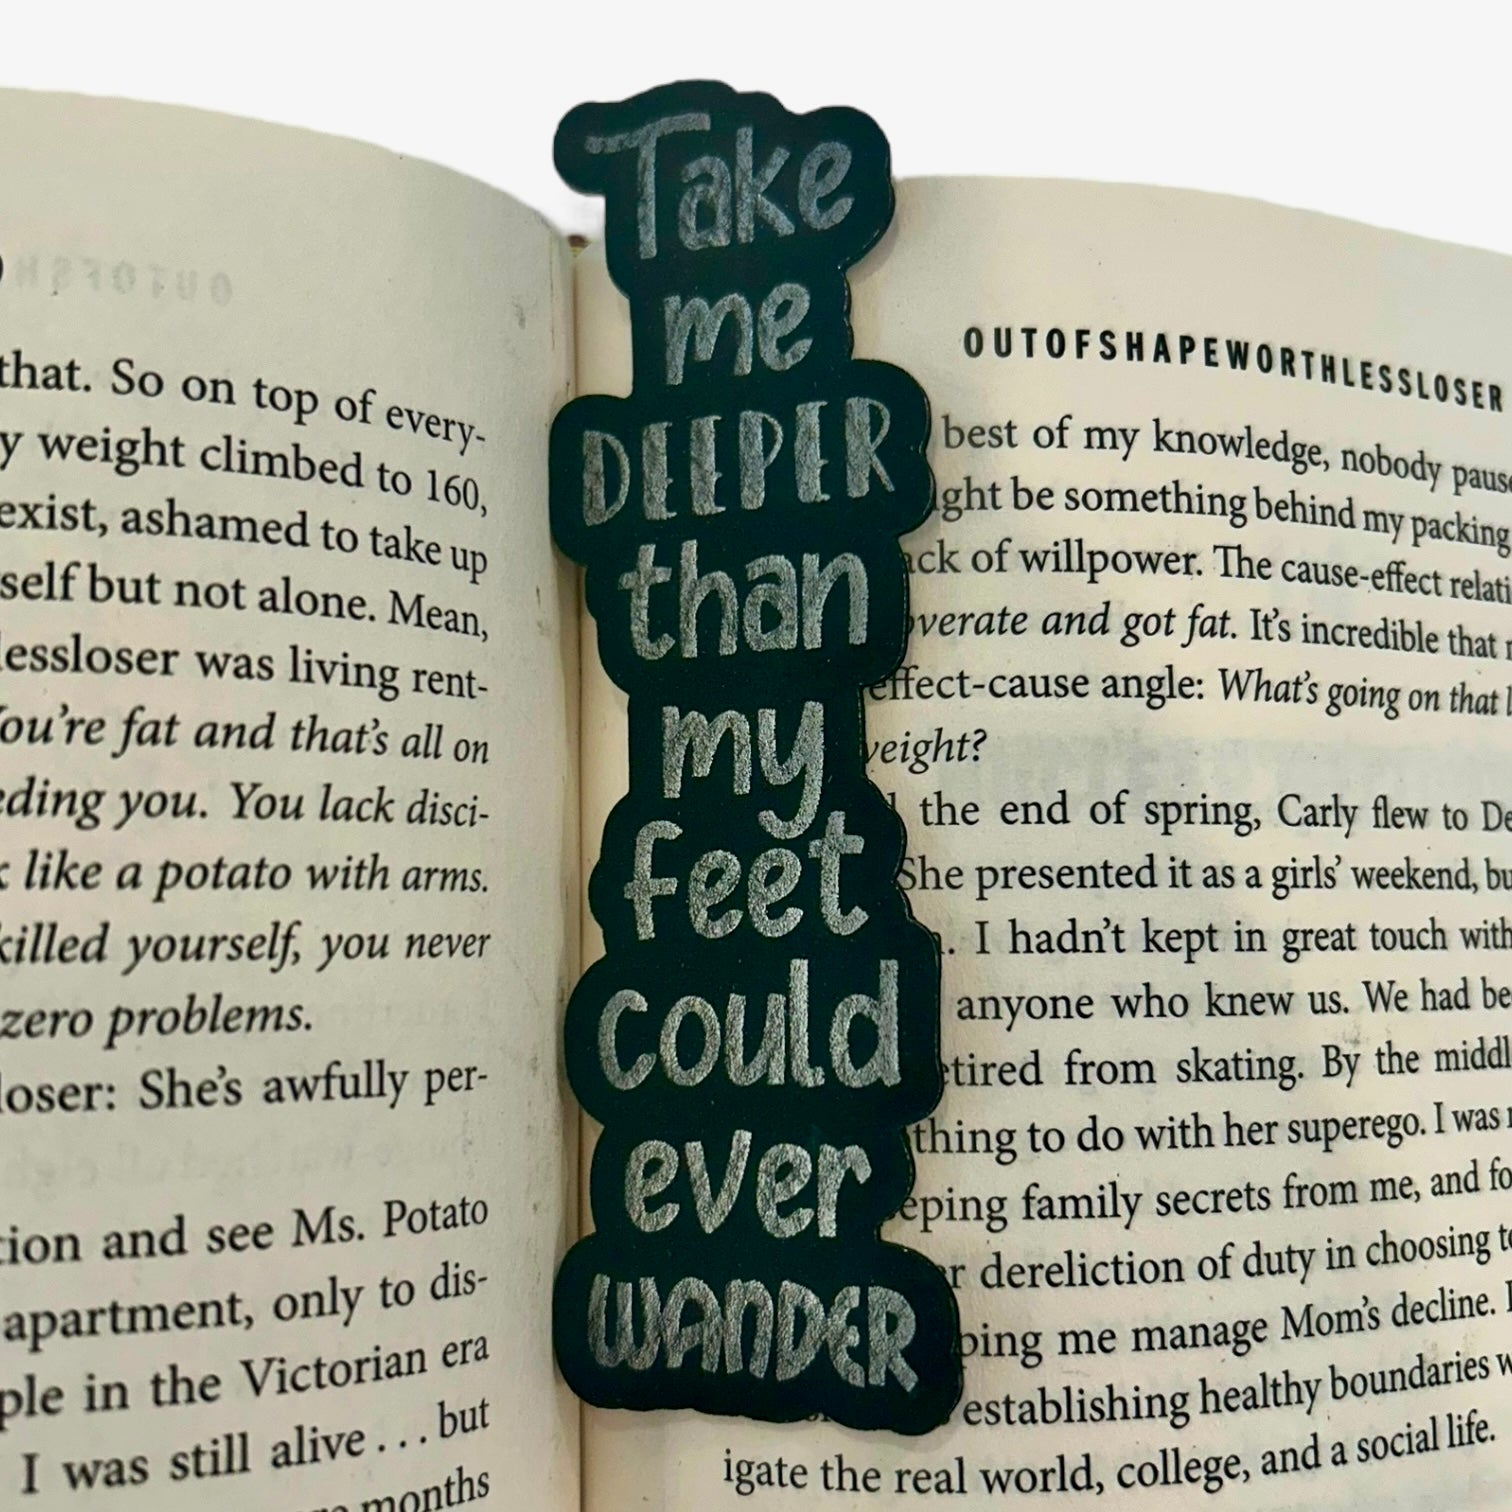 that. So on top of every-
weight climbed to 160,
exist, ashamed to take up
self but not alone. Mean,
lessloser was living rent-
You're fat and that's all on
you. You lack disci-
like a potato with arms.
killed yourself, you never
zero problems.
loser: She's awfully per-
and see Ms. Potato
apartment, only to dis-
in the Victorian era
I was still alive . . . but
months
Take
me
DEEPER
than
my
feet
could
ever
WANDER
OUTOFSHAPEWORTHLESSLOSER
best of my knowledge, nobody
be something behind my packing
of willpower. The cause-effect
overate and got fat. It's incredible that
effect-cause angle: What's going on that
weight?
the end of spring, Carly flew to
She presented it as a girls' weekend,
I hadn't kept in great touch with
anyone who knew us. We had
from skating. By the
thing to do with her superego. I was
family secrets from me, and
dereliction of duty in choosing
me manage Mom's decline.
establishing healthy boundaries
igate the real world, college, and a social life.